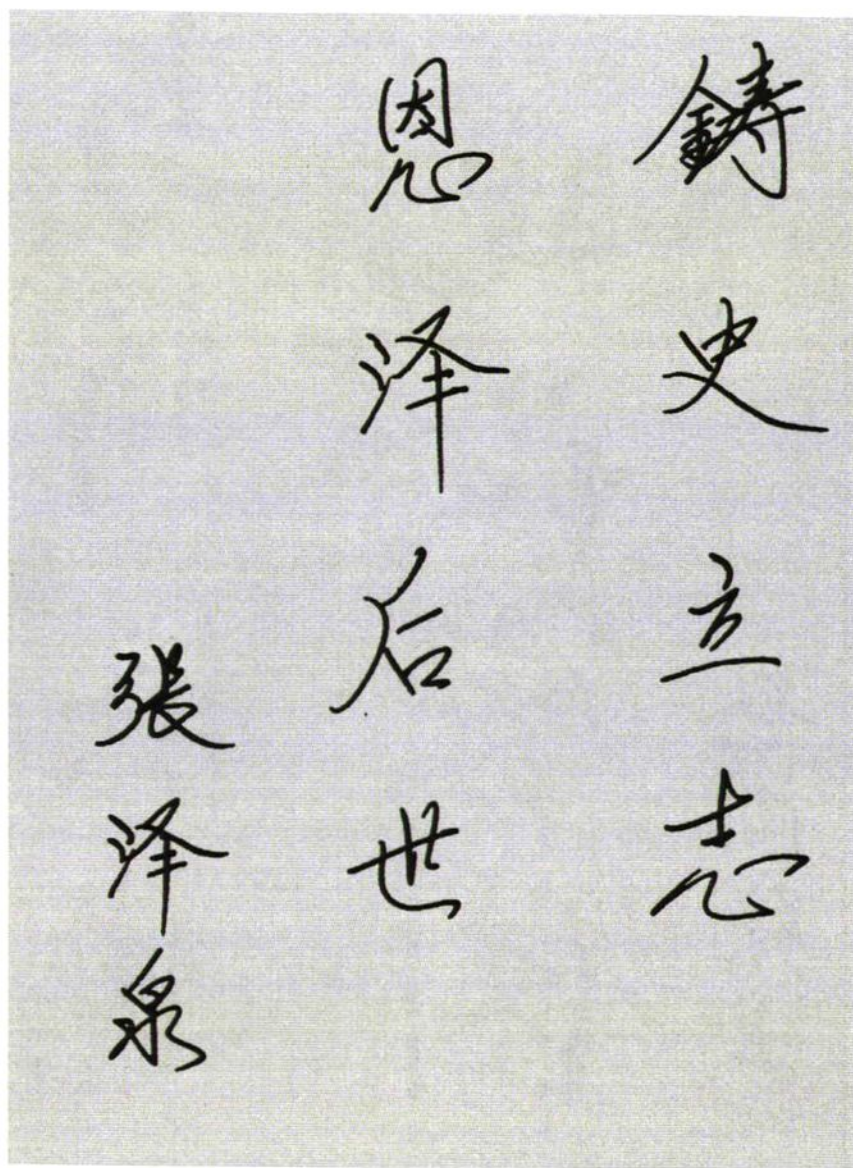 鑄史立志
恩泽后世
張泽泉